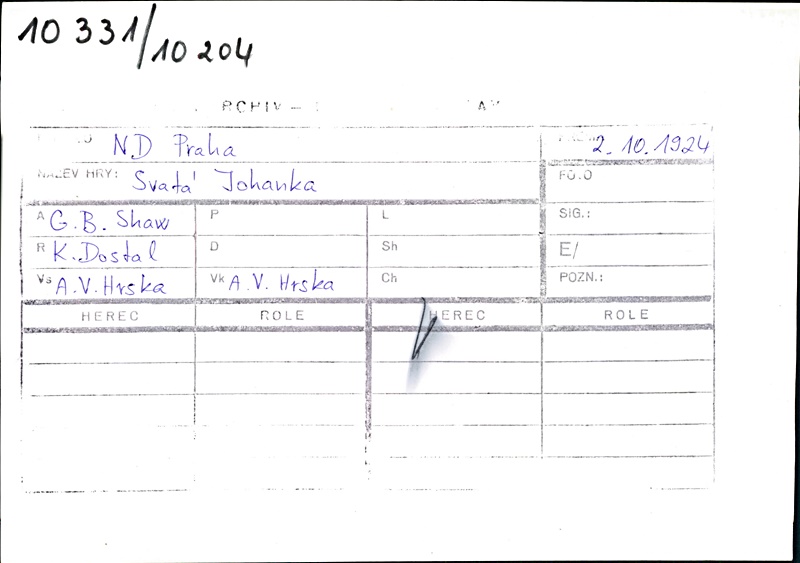 10 331/10 204
ND Praha 2. 10. 1924
NÁZEV HRY: Svatá Johanka FOTO
A G. B. Shaw P L SIG.:
R K. Dostal D Sh E/
Vs A. V. Hrska Vk A. V. Hrska Ch POZN.:
HEREC ROLE HEREC ROLE